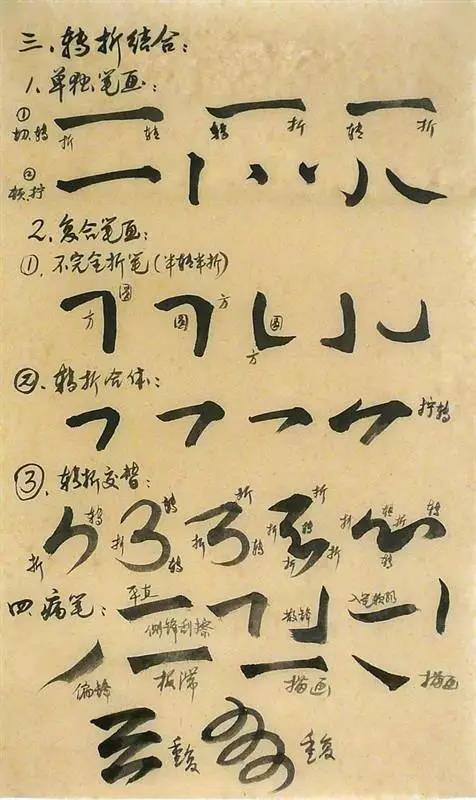 三、转折结合：
1.单独笔画：
① 切.转 折 转 转 折 转 折
② 顿.拧
2.复合笔画：
①、不完全折笔（半转半折）
方 圆 圆 方 圆 方
②、转折合体：
拧转
③、转折交替：
折 转 折 转 转 折 折 转 折 折 转 折 折 折 转 折 转 转
四、病笔：平直 侧锋刮擦 散锋 入笔顿阴
偏锋 板滞 描画 描画
重复 重复